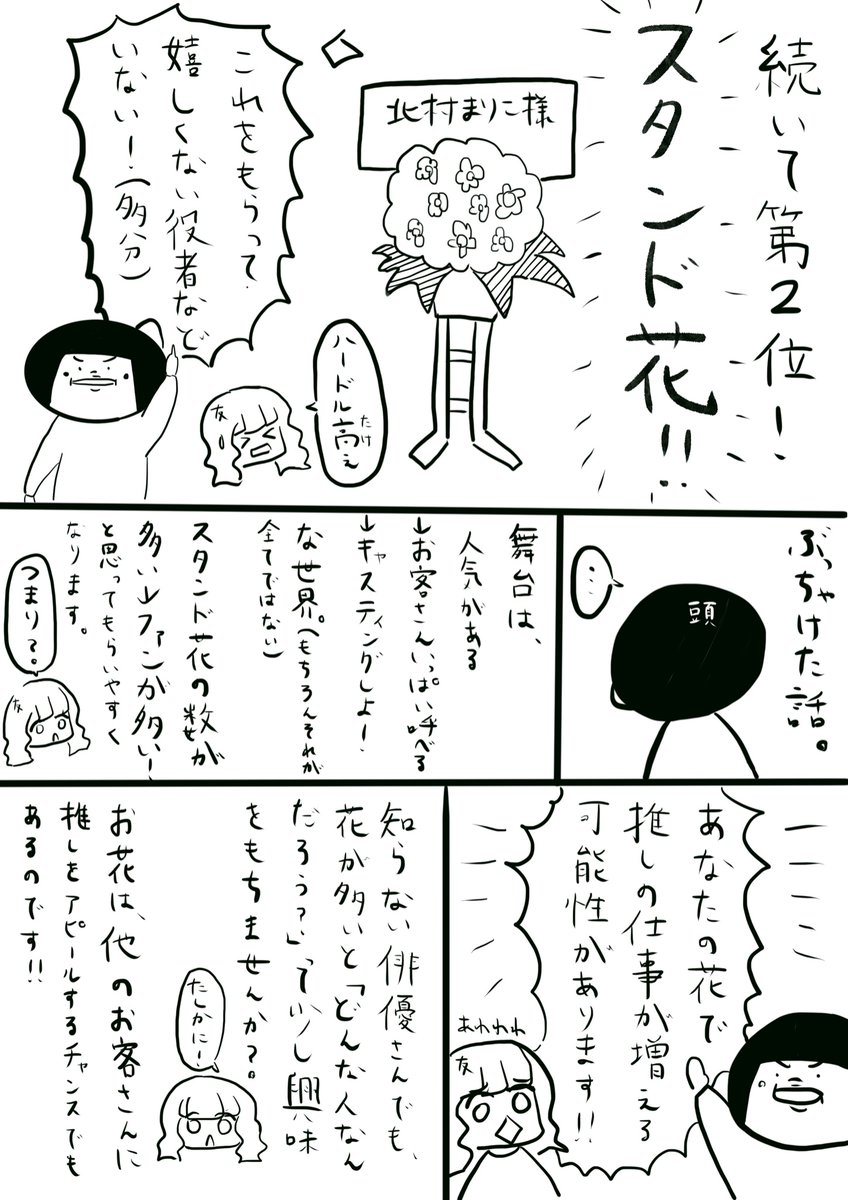 続いて第2位!
スタンド花!!
北村まりこ様
これをもらって
嬉しくない役者など
いない!(多分)
ハードル高え
たけ
友
ぶっちゃけた話。
頭
…
舞台は、
人気がある
→お客さんいっぱい呼べる
→キャスティングしよー!
な世界。(もちろんそれが
全てではない)
スタンド花の数が
多い→ファンが多い!
と思ってもらいやすく
なります。
つまり?。
友
あなたの花で
推しの仕事が増える
可能性があります!!
あわわわ
友
知らない俳優さんでも、
花が多いと「どんな人なん
だろう?」って少し興味
をもちませんか?。
お花は、他のお客さんに
推しをアピールするチャンスでも
あるのです!!
たしかに!
友